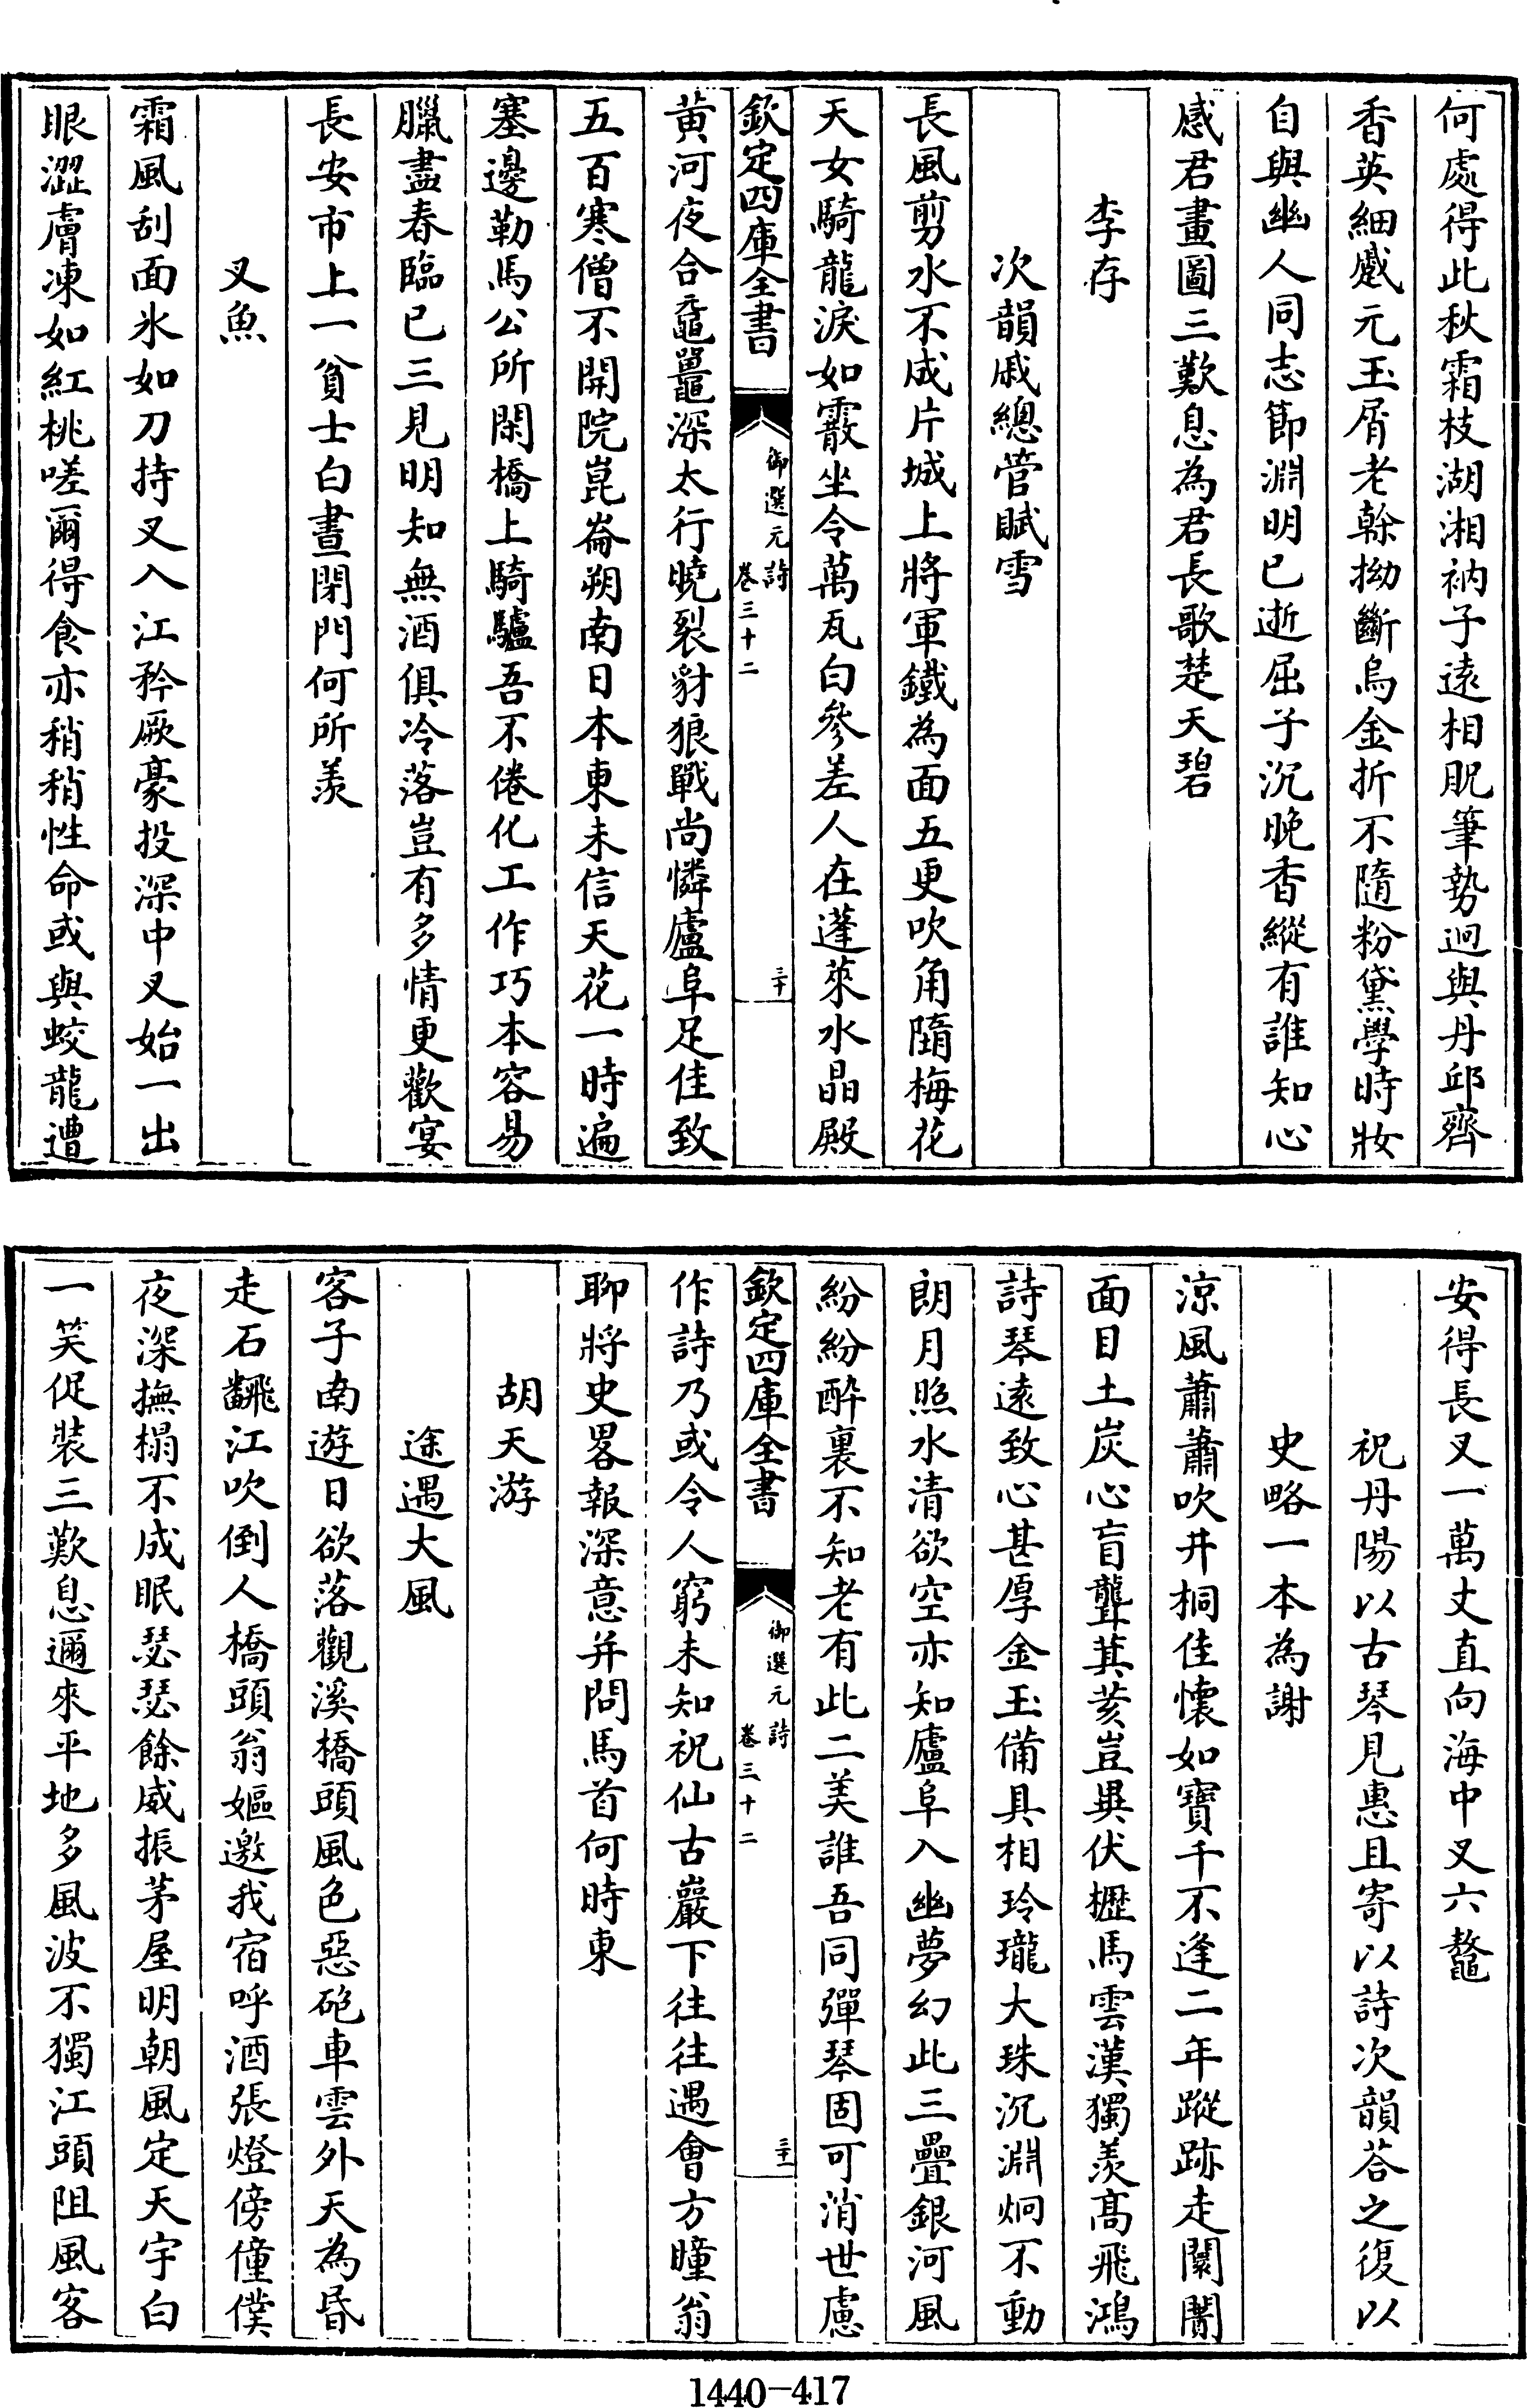 何處得此秋霜枝湖湘衲子遠相貺筆勢迥與丹邱齊
香英細蹙元玉屑老榦拗斷烏金折不隨粉黛學時妝
自與幽人同志節淵明已逝屈子沉晚香縱有誰知心
感君畫圖三歎息為君長歌楚天碧
李存
次韻戚總管賦雪
長風剪水不成片城上將軍鐵為面五更吹角隨梅花
天女騎龍淚如霰坐令萬瓦白參差人在蓬萊水晶殿
欽定四庫全書
御選元詩
卷三十二
三十
黃河夜合黿鼉深太行曉裂豺狼戰尚憐廬阜足佳致
五百寒僧不開院崑崙朔南日本東未信天花一時遍
塞邊勒馬公所閑橋上騎驢吾不倦化工作巧本容易
臘盡春臨已三見明知無酒俱冷落豈有多情更歡宴
長安市上一貧士白晝閉門何所羨
叉魚
霜風刮面氷如刀持叉入江矜厥豪投深中叉始一出
眼澀膚凍如紅桃嗟爾得食亦稍稍性命或與蛟龍遭
安得長叉一萬丈直向海中叉六鼇
祝丹陽以古琴見惠且寄以詩次韻荅之復以
史略一本為謝
涼風蕭蕭吹井桐佳懷如寶千不逢二年蹤跡走闤闠
面目土炭心盲聾萁荄豈異伏櫪馬雲漢獨羨高飛鴻
詩琴遠致心甚厚金玉備具相玲瓏大珠沉淵炯不動
朗月照水清欲空亦知廬阜入幽夢幻此三疊銀河風
紛紛醉裏不知老有此二美誰吾同彈琴固可消世慮
欽定四庫全書
御選元詩
卷三十二
三十一
作詩乃或令人窮未知祝仙古巖下往往遇會方瞳翁
聊將史畧報深意并問馬首何時東
胡天游
途遇大風
客子南遊日欲落觀溪橋頭風色惡砲車雲外天為昏
走石飜江吹倒人橋頭翁嫗邀我宿呼酒張燈傍僮僕
夜深撫榻不成眠瑟瑟餘威振茅屋明朝風定天宇白
一笑促裝三歎息邇來平地多風波不獨江頭阻風客
1440-417